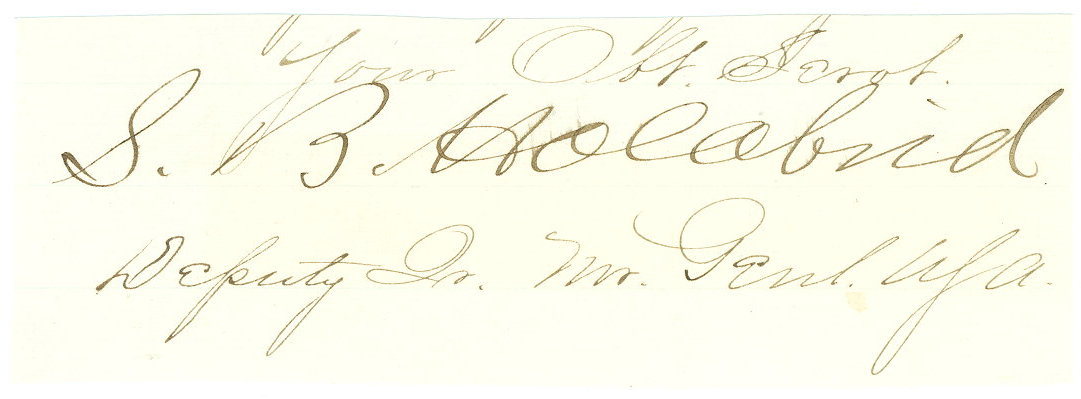 Your Obt. Servt.
S. B. Holabird
Deputy Qr. Mr. Genl. USA.